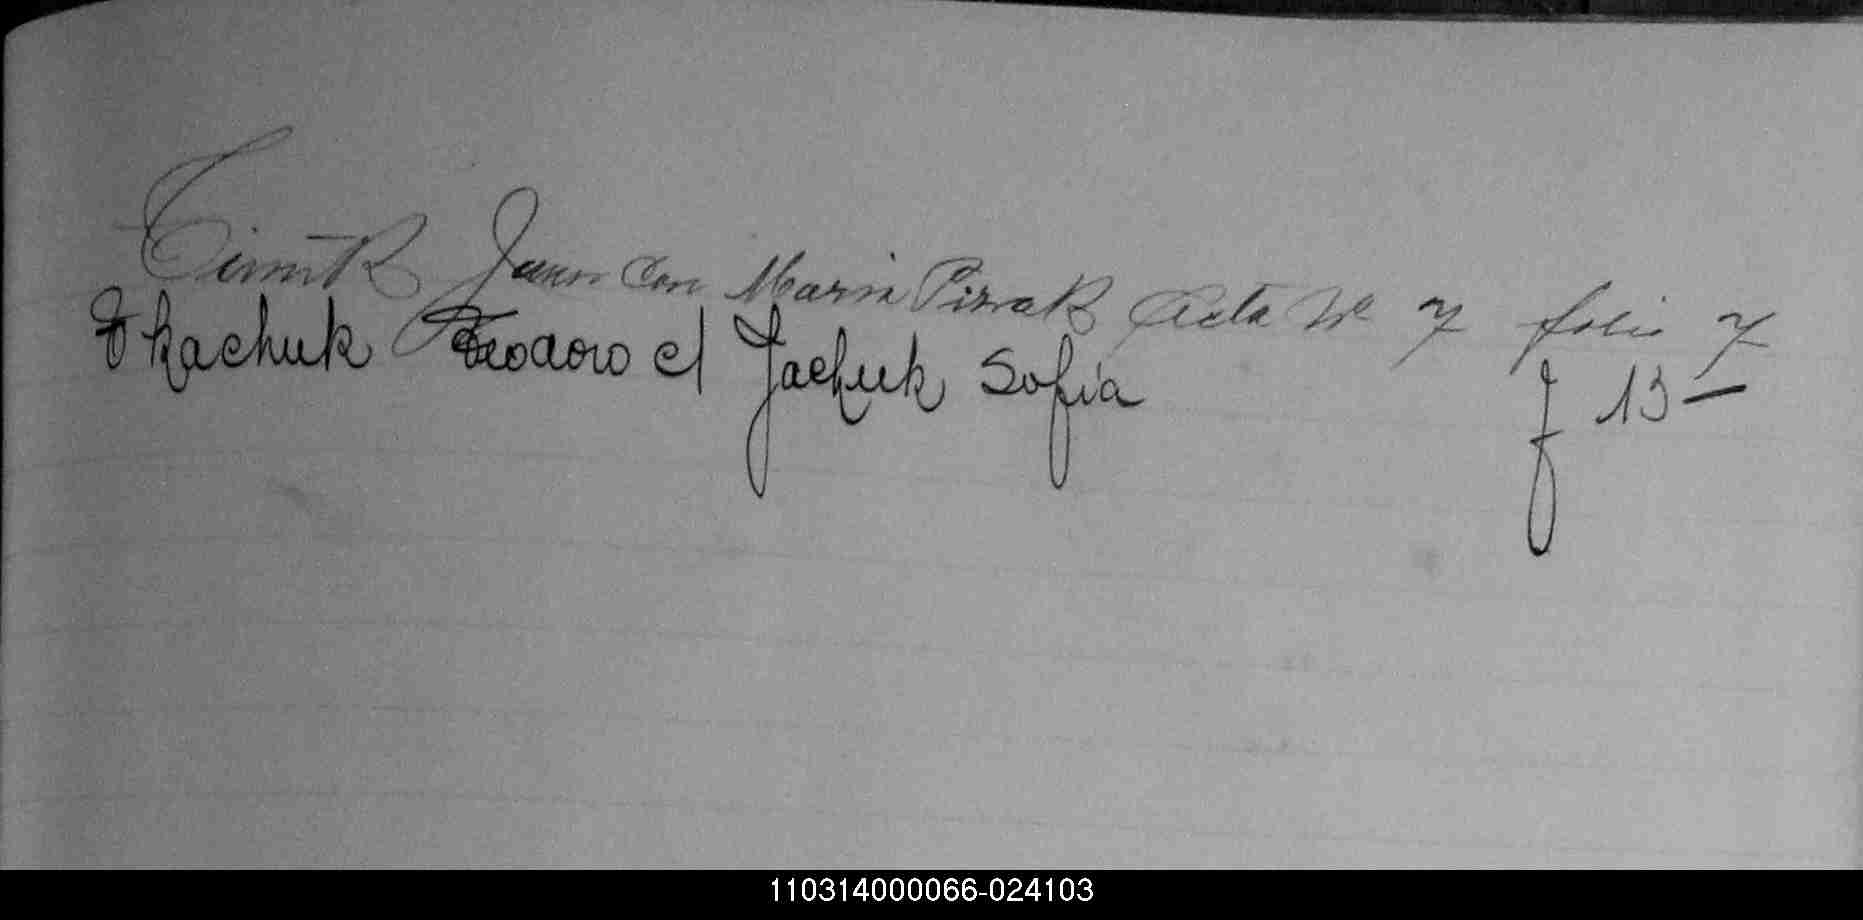 Juan con Maria Acta Nº 7 folio 7
Tkachuk Teodoro c/ Jachuk Sofia f 13 —
110314000066-024103